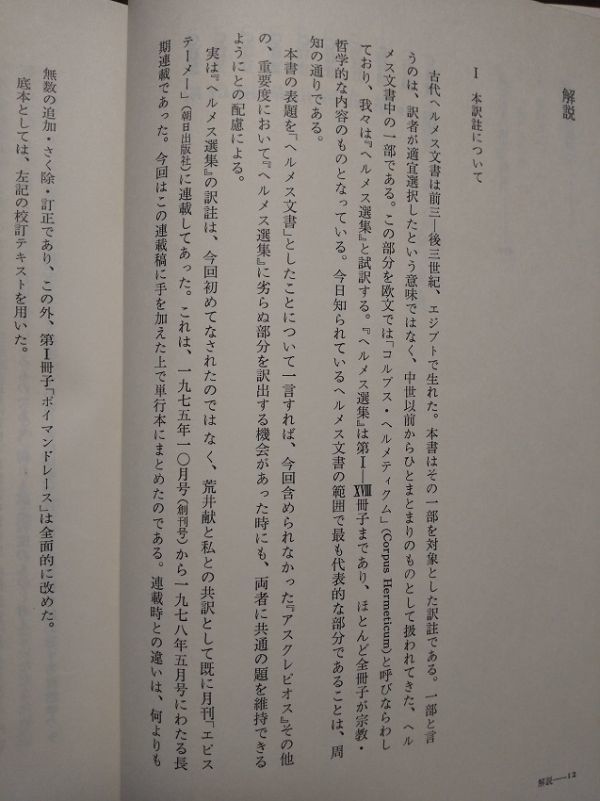 解説
I 本訳註について
古代ヘルメス文書は前三―後三世紀、エジプトで生れた。本書はその一部を対象とした訳註である。一部と言
うのは、訳者が適宜選択したという意味ではなく、中世以前からひとまとまりのものとして扱われてきた、ヘル
メス文書中の一部である。この部分を欧文では「コルプス・ヘルメティクム」(Corpus Hermeticum)と呼びならわし
ており、我々は『ヘルメス選集』と試訳する。『ヘルメス選集』は第I―XVIII冊子まであり、ほとんど全冊子が宗教・
哲学的な内容のものとなっている。今日知られているヘルメス文書の範囲で最も代表的な部分であることは、周
知の通りである。
本書の表題を『ヘルメス文書』としたことについて一言すれば、今回含められなかった『アスクレピオス』その他
の、重要度において『ヘルメス選集』に劣らぬ部分を訳出する機会があった時にも、両者に共通の題を維持できる
ようにとの配慮による。
実は『ヘルメス選集』の訳註は、今回初めてなされたのではなく、荒井献と私との共訳として既に月刊「エピス
テーメー」(朝日出版社)に連載してあった。これは、一九七五年一〇月号(創刊号)から一九七八年五月号にわたる長
期連載であった。今回はこの連載稿に手を加えた上で単行本にまとめたのである。連載時との違いは、何よりも
解説――12
無数の追加・さく除・訂正であり、この外、第I冊子「ポイマンドレース」は全面的に改めた。
底本としては、左記の校訂テキストを用いた。